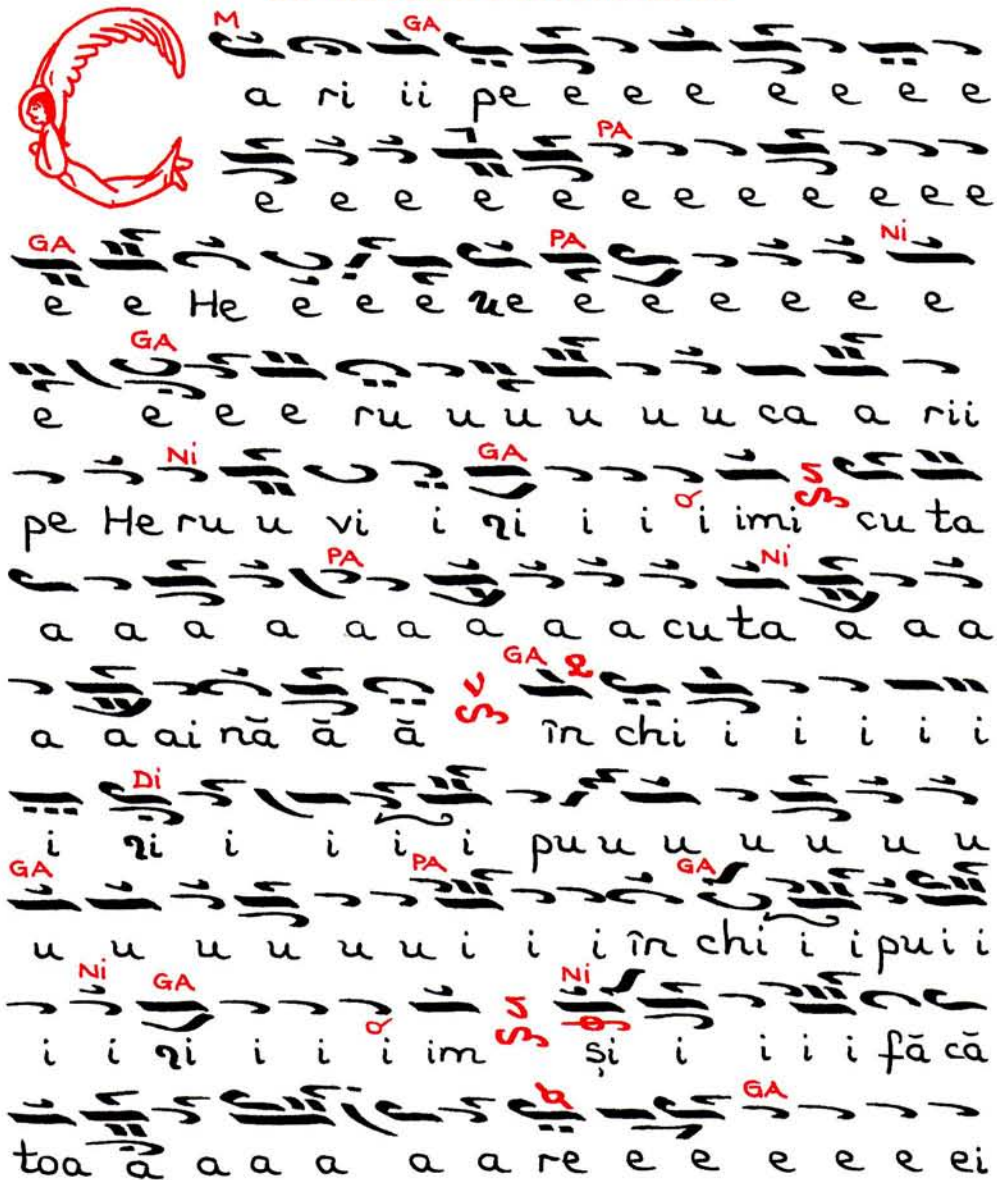 M GA
C a ri ii pe e e e e e e e
PA
e e e e e e e e e e e e
GA PA Ni
e e He e e e ne e e e e e e e
GA
e e e e ru u u u u u ca a rii
Ni GA
pe He ru u vi i ni i i i imi cu ta
PA Ni
a a a a a a a a a cu ta a a a
GA
a a ai nă ă ă în chi i i i i i
Di
i ni i i i i pu u u u u u u
GA PA GA
u u u u u u i i i în chi i i pui i
Ni GA Ni
i i ni i i i im și i i i i fă că
GA
toa a a a a a a re e e e e e ei